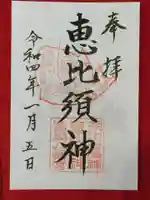 奉拝
恵比須神
令和四年一月五日